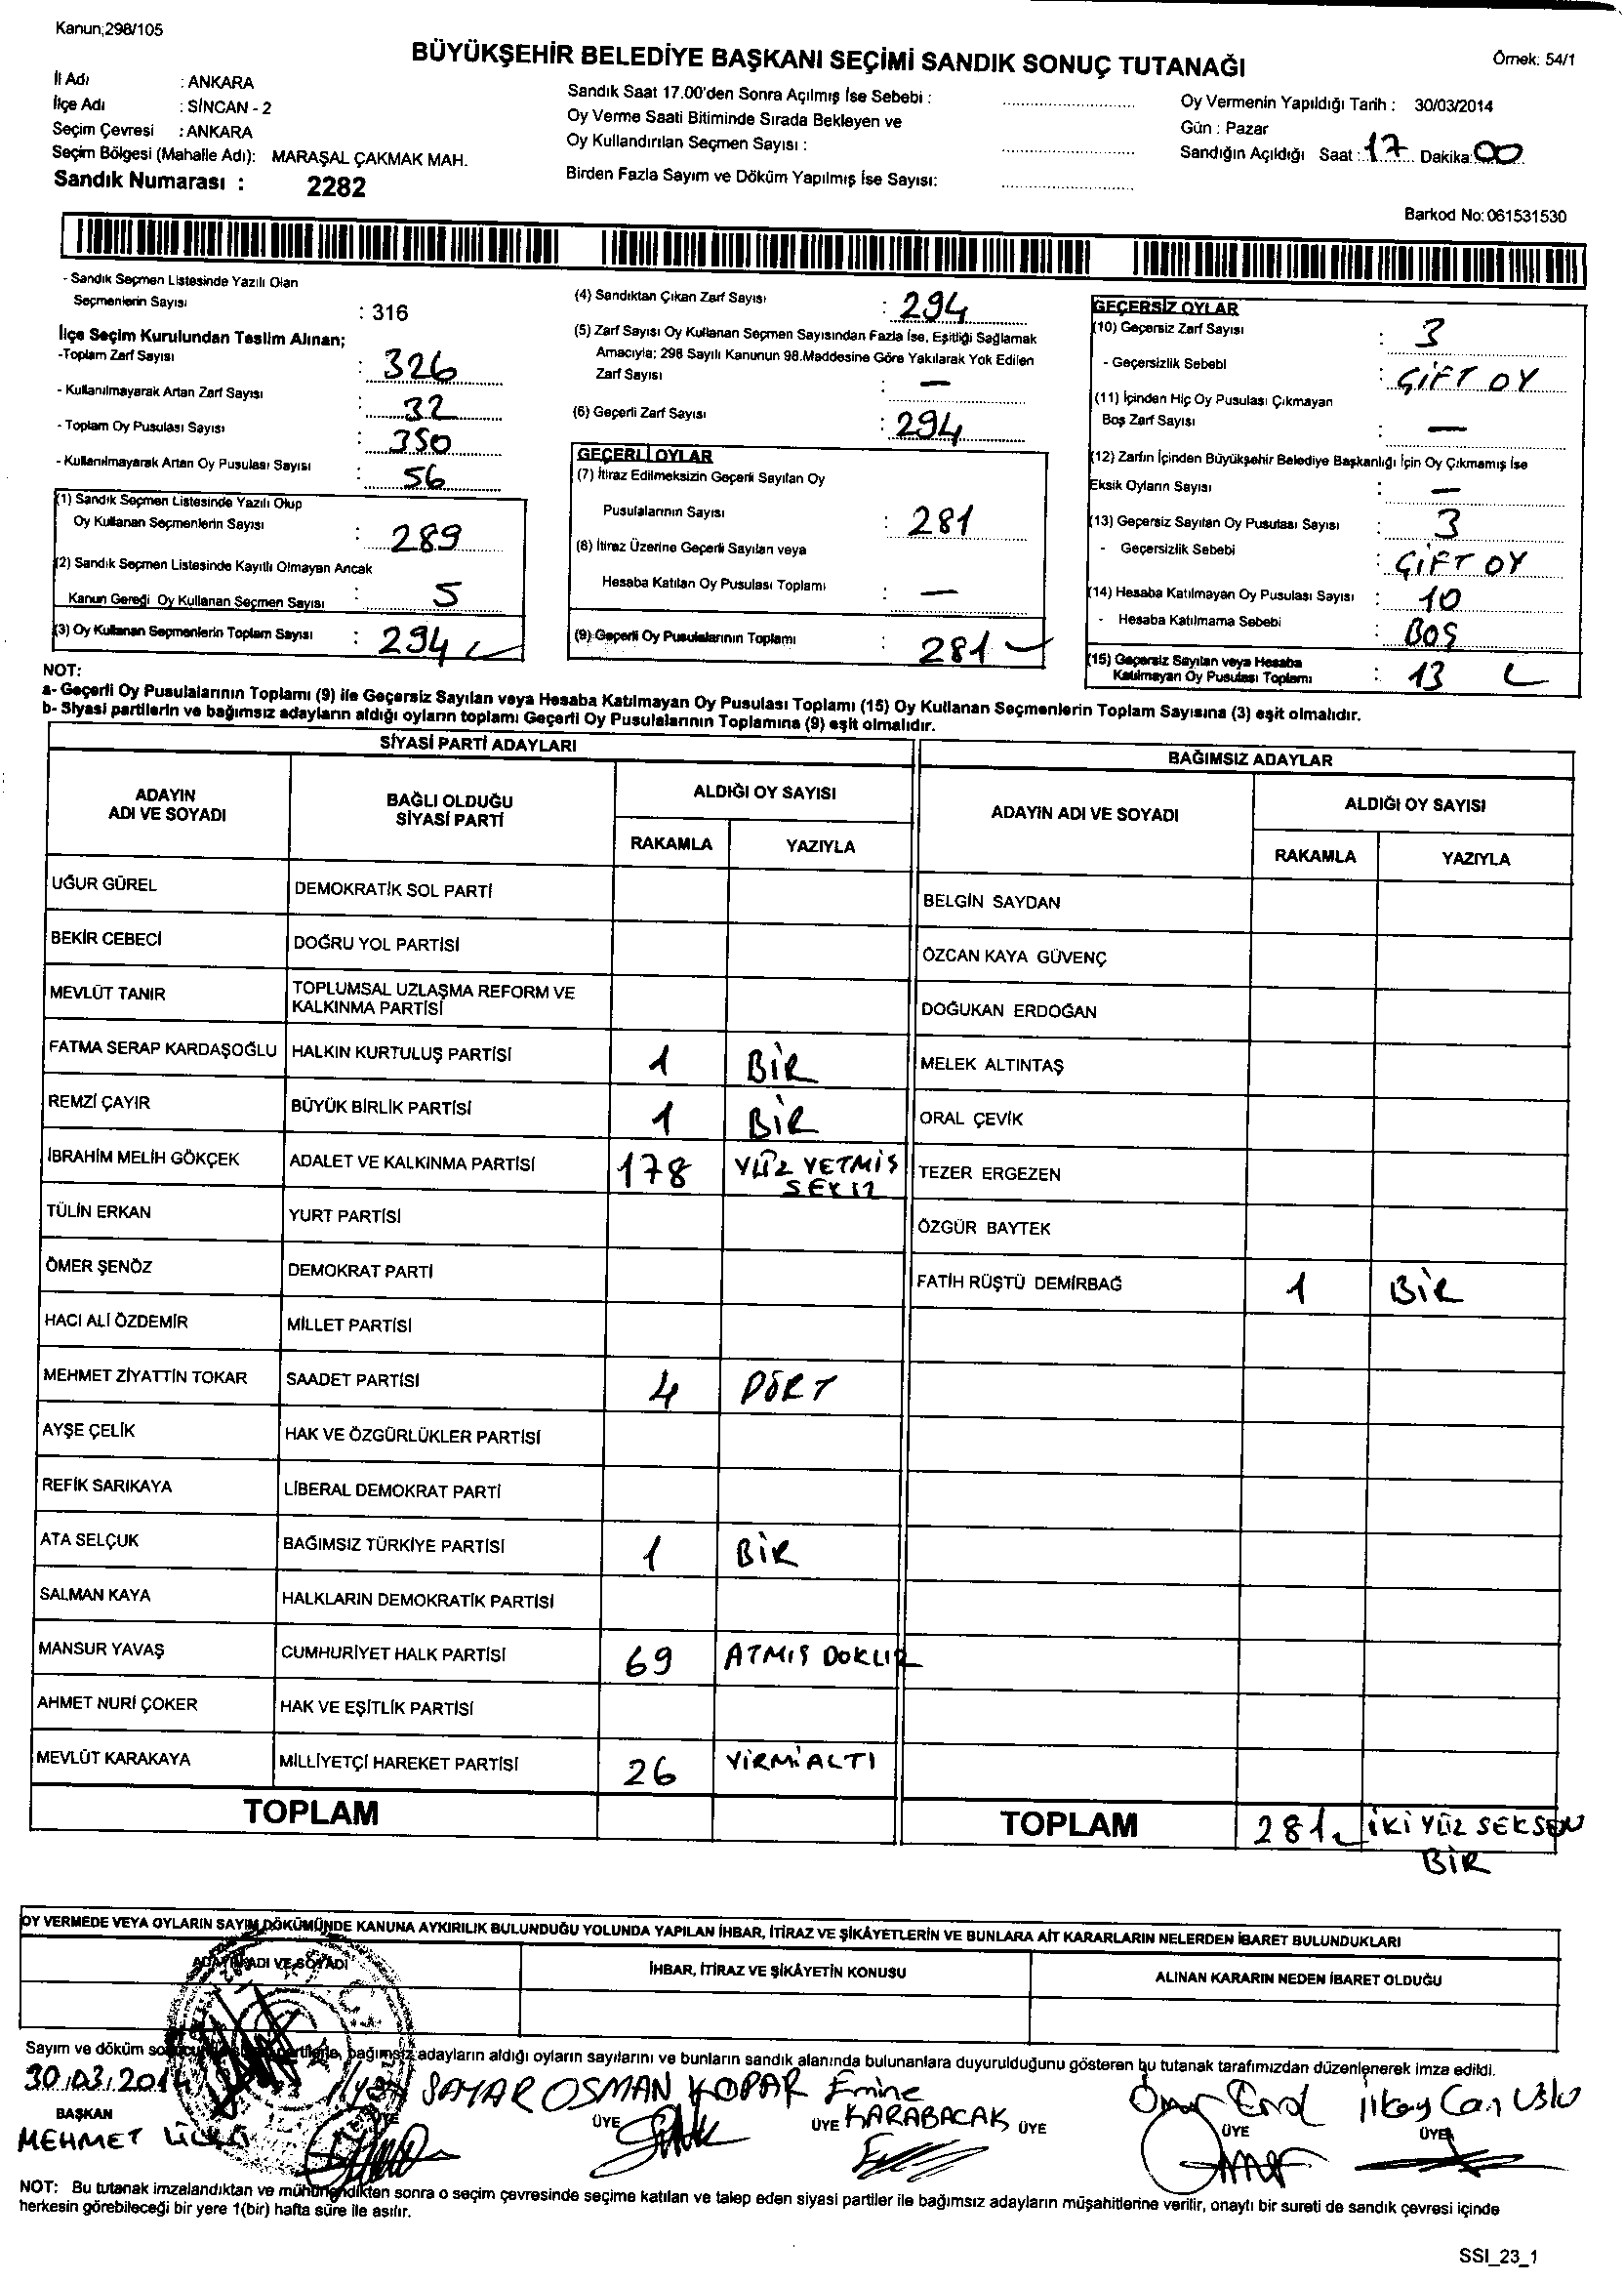 Kanun;298/105
BÜYÜKŞEHİR BELEDİYE BAŞKANI SEÇİMİ SANDIK SONUÇ TUTANAĞI
Örnek: 54/1
İl Adı : ANKARA
İlçe Adı : SİNCAN - 2
Seçim Çevresi : ANKARA
Seçim Bölgesi (Mahalle Adı): MARAŞAL ÇAKMAK MAH.
Sandık Numarası : 2282
Sandık Saat 17.00'den Sonra Açılmış İse Sebebi :
Oy Verme Saati Bitiminde Sırada Bekleyen ve
Oy Kullandırılan Seçmen Sayısı :
Birden Fazla Sayım ve Döküm Yapılmış İse Sayısı:
Oy Vermenin Yapıldığı Tarih : 30/03/2014
Gün : Pazar
Sandığın Açıldığı Saat : 17 Dakika: 00
Barkod No: 061531530
- Sandık Seçmen Listesinde Yazılı Olan
Seçmenlerin Sayısı : 316
İlçe Seçim Kurulundan Teslim Alınan;
-Toplam Zarf Sayısı : 326
- Kullanılmayarak Artan Zarf Sayısı : 32
- Toplam Oy Pusulası Sayısı : 350
- Kullanılmayarak Artan Oy Pusulası Sayısı : 56
(1) Sandık Seçmen Listesinde Yazılı Olup
Oy Kullanan Seçmenlerin Sayısı : 289
(2) Sandık Seçmen Listesinde Kayıtlı Olmayan Ancak
Kanun Gereği Oy Kullanan Seçmen Sayısı : 5
(3) Oy Kullanan Seçmenlerin Toplam Sayısı : 294
(4) Sandıktan Çıkan Zarf Sayısı : 294
(5) Zarf Sayısı Oy Kullanan Seçmen Sayısından Fazla İse, Eşitliği Sağlamak
Amacıyla; 298 Sayılı Kanunun 98.Maddesine Göre Yakılarak Yok Edilen
Zarf Sayısı : —
(6) Geçerli Zarf Sayısı : 294
GEÇERLİ OYLAR
(7) İtiraz Edilmeksizin Geçerli Sayılan Oy
Pusulalarının Sayısı : 281
(8) İtiraz Üzerine Geçerli Sayılan veya
Hesaba Katılan Oy Pusulası Toplamı : —
(9) Geçerli Oy Pusulalarının Toplamı : 281
GEÇERSİZ OYLAR
(10) Geçersiz Zarf Sayısı : 3
- Geçersizlik Sebebi : ÇİFT OY
(11) İçinden Hiç Oy Pusulası Çıkmayan
Boş Zarf Sayısı : —
(12) Zarfın İçinden Büyükşehir Belediye Başkanlığı İçin Oy Çıkmamış İse
Eksik Oyların Sayısı : —
(13) Geçersiz Sayılan Oy Pusulası Sayısı : 3
- Geçersizlik Sebebi : ÇİFT OY
(14) Hesaba Katılmayan Oy Pusulası Sayısı : 10
- Hesaba Katılmama Sebebi : BOŞ
(15) Geçersiz Sayılan veya Hesaba
Katılmayan Oy Pusulası Toplamı : 13
NOT:
a- Geçerli Oy Pusulalarının Toplamı (9) ile Geçersiz Sayılan veya Hesaba Katılmayan Oy Pusulası Toplamı (15) Oy Kullanan Seçmenlerin Toplam Sayısına (3) eşit olmalıdır.
b- Siyasi partilerin ve bağımsız adayların aldığı oyların toplamı Geçerli Oy Pusulalarının Toplamına (9) eşit olmalıdır.
SİYASİ PARTİ ADAYLARI
ADAYIN ADI VE SOYADI BAĞLI OLDUĞU SİYASİ PARTİ ALDIĞI OY SAYISI
RAKAMLA YAZIYLA
UĞUR GÜREL DEMOKRATİK SOL PARTİ
BEKİR CEBECİ DOĞRU YOL PARTİSİ
MEVLÜT TANIR TOPLUMSAL UZLAŞMA REFORM VE
KALKINMA PARTİSİ
FATMA SERAP KARDAŞOĞLU HALKIN KURTULUŞ PARTİSİ 1 BİR
REMZİ ÇAYIR BÜYÜK BİRLİK PARTİSİ 1 BİR
İBRAHİM MELİH GÖKÇEK ADALET VE KALKINMA PARTİSİ 178 YÜZ YETMİŞ
SEKİZ
TÜLİN ERKAN YURT PARTİSİ
ÖMER ŞENÖZ DEMOKRAT PARTİ
HACI ALİ ÖZDEMİR MİLLET PARTİSİ
MEHMET ZİYATTİN TOKAR SAADET PARTİSİ 4 DÖRT
AYŞE ÇELİK HAK VE ÖZGÜRLÜKLER PARTİSİ
REFİK SARIKAYA LİBERAL DEMOKRAT PARTİ
ATA SELÇUK BAĞIMSIZ TÜRKİYE PARTİSİ 1 BİR
SALMAN KAYA HALKLARIN DEMOKRATİK PARTİSİ
MANSUR YAVAŞ CUMHURİYET HALK PARTİSİ 69 ATMIŞ DOKUZ
AHMET NURİ ÇOKER HAK VE EŞİTLİK PARTİSİ
MEVLÜT KARAKAYA MİLLİYETÇİ HAREKET PARTİSİ 26 YİRMİ ALTI
TOPLAM
BAĞIMSIZ ADAYLAR
ADAYIN ADI VE SOYADI ALDIĞI OY SAYISI
RAKAMLA YAZIYLA
BELGİN SAYDAN
ÖZCAN KAYA GÜVENÇ
DOĞUKAN ERDOĞAN
MELEK ALTINTAŞ
ORAL ÇEVİK
TEZER ERGEZEN
ÖZGÜR BAYTEK
FATİH RÜŞTÜ DEMİRBAĞ 1 BİR
TOPLAM 281 İKİ YÜZ SEKSEN
BİR
OY VERMEDE VEYA OYLARIN SAYIM DÖKÜMÜNDE KANUNA AYKIRILIK BULUNDUĞU YOLUNDA YAPILAN İHBAR, İTİRAZ VE ŞİKÂYETLERİN VE BUNLARA AİT KARARLARIN NELERDEN İBARET BULUNDUKLARI
ADI VE SOYADI İHBAR, İTİRAZ VE ŞİKÂYETİN KONUSU ALINAN KARARIN NEDEN İBARET OLDUĞU
Sayım ve döküm bağımsız adayların aldığı oyların sayılarını ve bunların sandık alanında bulunanlara duyurulduğunu gösteren bu tutanak tarafımızdan düzenlenerek imza edildi.
30.03.2014 SAYAR OSMAN KOPAR Emine KARABACAK Ömer Erol İlkay Can Uslu
BAŞKAN ÜYE ÜYE ÜYE ÜYE ÜYE
MEHMET
NOT: Bu tutanak imzalandıktan ve mühürlendikten sonra o seçim çevresinde seçime katılan ve talep eden siyasi partiler ile bağımsız adayların müşahitlerine verilir, onaylı bir sureti de sandık çevresi içinde
herkesin görebileceği bir yere 1(bir) hafta süre ile asılır.
SSI_23_1